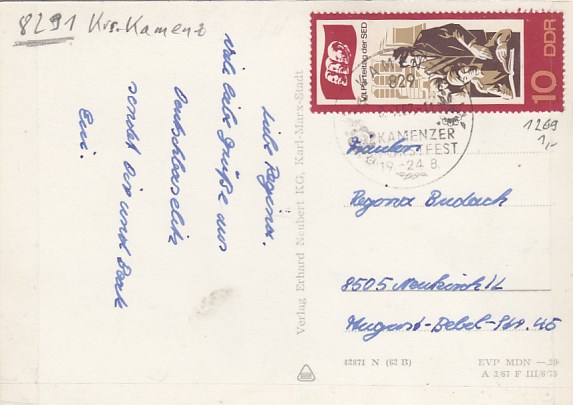 8291 Krs. Kamenz
Liebe Regina.
Viele liebe Grüße aus
sendet Dir und
VII. Parteitag der SED
10 DDR
KAMENZ
829
KAMENZER
FORSTFEST
19.-24.8.
1269
1,-
Fräulein
Regina Budach
8505 Neukirch/L
August-Bebel-Str. 45
Verlag Erhard Neubert KG, Karl-Marx-Stadt
43871 N (63 B)
EVP MDN —.20
A 3/67 F III/6/75